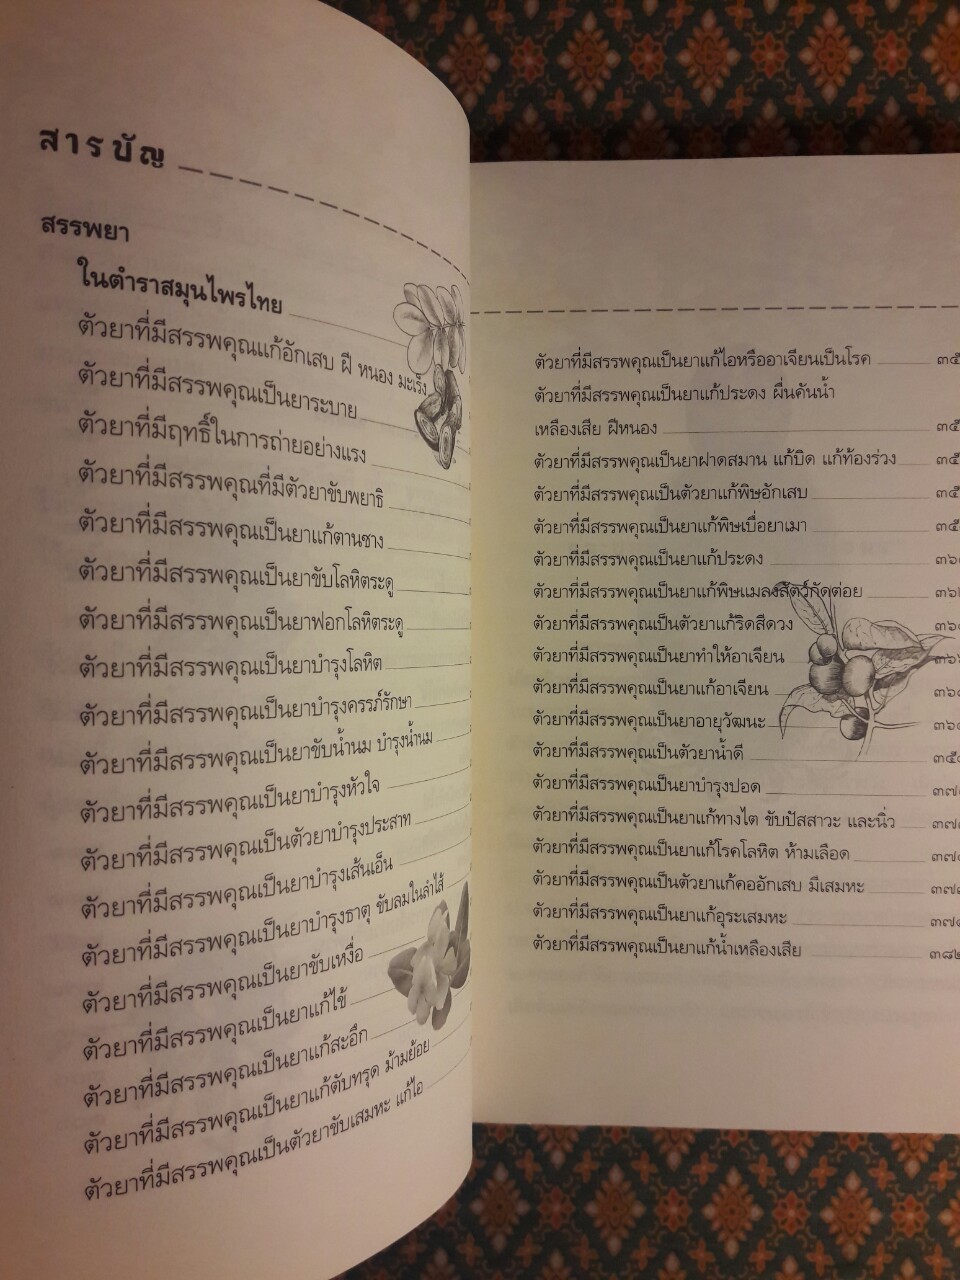 สารบัญ
สรรพยา
ในตำราสมุนไพรไทย
ตัวยาที่มีสรรพคุณแก้อักเสบ ฝี หนอง มะเร็ง
ตัวยาที่มีสรรพคุณเป็นยาระบาย
ตัวยาที่มีฤทธิ์ในการถ่ายอย่างแรง
ตัวยาที่มีสรรพคุณที่มีตัวยาขับพยาธิ
ตัวยาที่มีสรรพคุณเป็นยาแก้ตานซาง
ตัวยาที่มีสรรพคุณเป็นยาขับโลหิตระดู
ตัวยาที่มีสรรพคุณเป็นยาฟอกโลหิตระดู
ตัวยาที่มีสรรพคุณเป็นยาบำรุงโลหิต
ตัวยาที่มีสรรพคุณเป็นยาบำรุงครรภ์รักษา
ตัวยาที่มีสรรพคุณเป็นยาขับน้ำนม บำรุงน้ำนม
ตัวยาที่มีสรรพคุณเป็นยาบำรุงหัวใจ
ตัวยาที่มีสรรพคุณเป็นตัวยาบำรุงประสาท
ตัวยาที่มีสรรพคุณเป็นยาบำรุงเส้นเอ็น
ตัวยาที่มีสรรพคุณเป็นยาบำรุงธาตุ ขับลมในลำไส้
ตัวยาที่มีสรรพคุณเป็นยาขับเหงื่อ
ตัวยาที่มีสรรพคุณเป็นยาแก้ไข้
ตัวยาที่มีสรรพคุณเป็นยาแก้สะอึก
ตัวยาที่มีสรรพคุณเป็นยาแก้ตับทรุด ม้ามย้อย
ตัวยาที่มีสรรพคุณเป็นตัวยาขับเสมหะ แก้ไอ
ตัวยาที่มีสรรพคุณเป็นยาแก้ไอหรืออาเจียนเป็นโรค
ตัวยาที่มีสรรพคุณเป็นยาแก้ประดง ผื่นคันน้ำ
เหลืองเสีย ฝีหนอง
ตัวยาที่มีสรรพคุณเป็นยาฝาดสมาน แก้บิด แก้ท้องร่วง
ตัวยาที่มีสรรพคุณเป็นตัวยาแก้พิษอักเสบ
ตัวยาที่มีสรรพคุณเป็นยาแก้พิษเบื่อยาเมา
ตัวยาที่มีสรรพคุณเป็นยาแก้ประดง
ตัวยาที่มีสรรพคุณเป็นยาแก้พิษแมลงสัตว์กัดต่อย
ตัวยาที่มีสรรพคุณเป็นตัวยาแก้ริดสีดวง
ตัวยาที่มีสรรพคุณเป็นยาทำให้อาเจียน
ตัวยาที่มีสรรพคุณเป็นยาแก้อาเจียน
ตัวยาที่มีสรรพคุณเป็นยาอายุวัฒนะ
ตัวยาที่มีสรรพคุณเป็นตัวยาน้ำดี
ตัวยาที่มีสรรพคุณเป็นยาบำรุงปอด
ตัวยาที่มีสรรพคุณเป็นยาแก้ทางไต ขับปัสสาวะ และนิ่ว
ตัวยาที่มีสรรพคุณเป็นยาแก้โรคโลหิต ห้ามเลือด
ตัวยาที่มีสรรพคุณเป็นตัวยาแก้คออักเสบ มีเสมหะ
ตัวยาที่มีสรรพคุณเป็นยาแก้อุระเสมหะ
ตัวยาที่มีสรรพคุณเป็นยาแก้น้ำเหลืองเสีย ๓๘๒